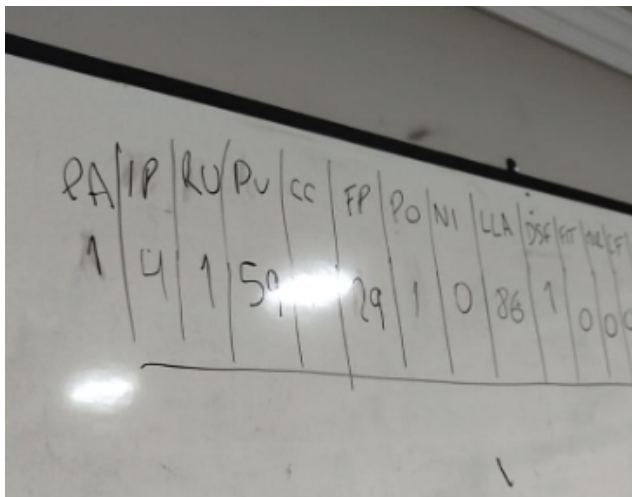 PA IP RU PU CC FP PO NI LLA DSF FIT CF
1 4 1 59 29 1 0 86 1 0 0